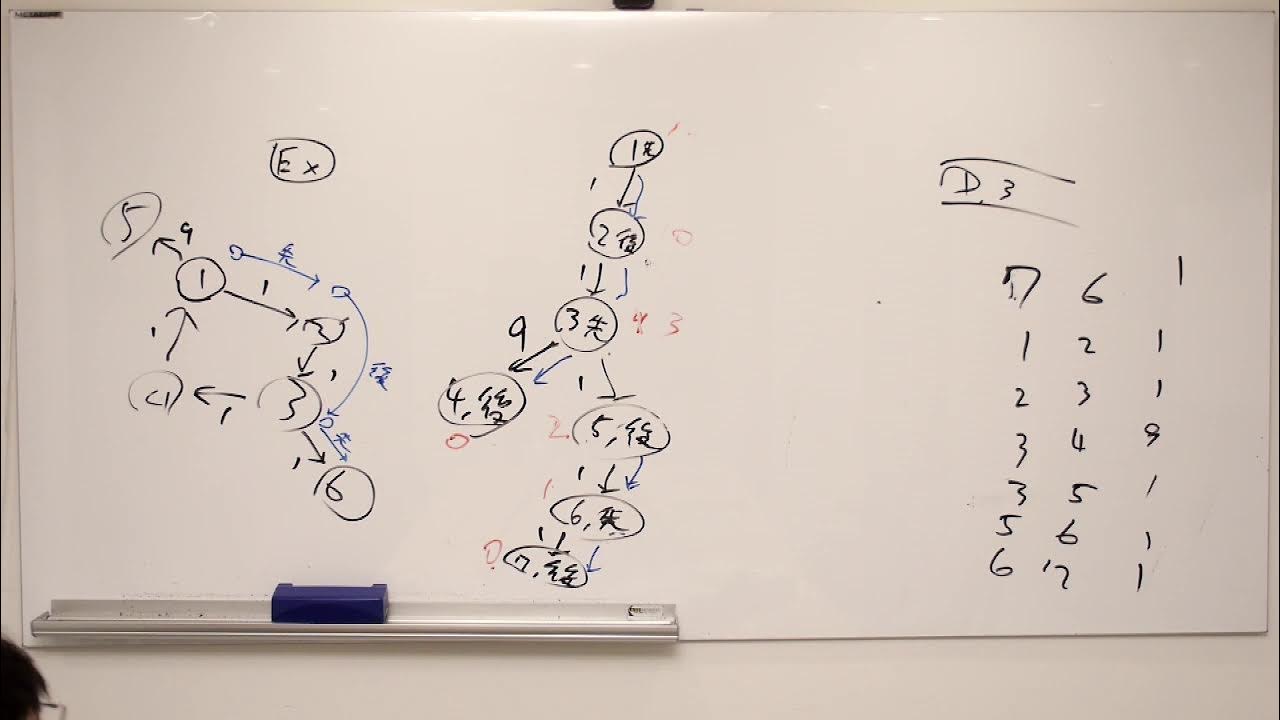 Ex
5
9
1
先
1
2
後
1
3
1
4
1
先
1
6
1先
1
2後
0
1
3先
4 3
9
1
4,後
0
2
5,後
1
1
6,先
1
0
7,後
D.3
7 6 1
1 2 1
2 3 1
3 4 9
3 5 1
5 6 1
6 7 1